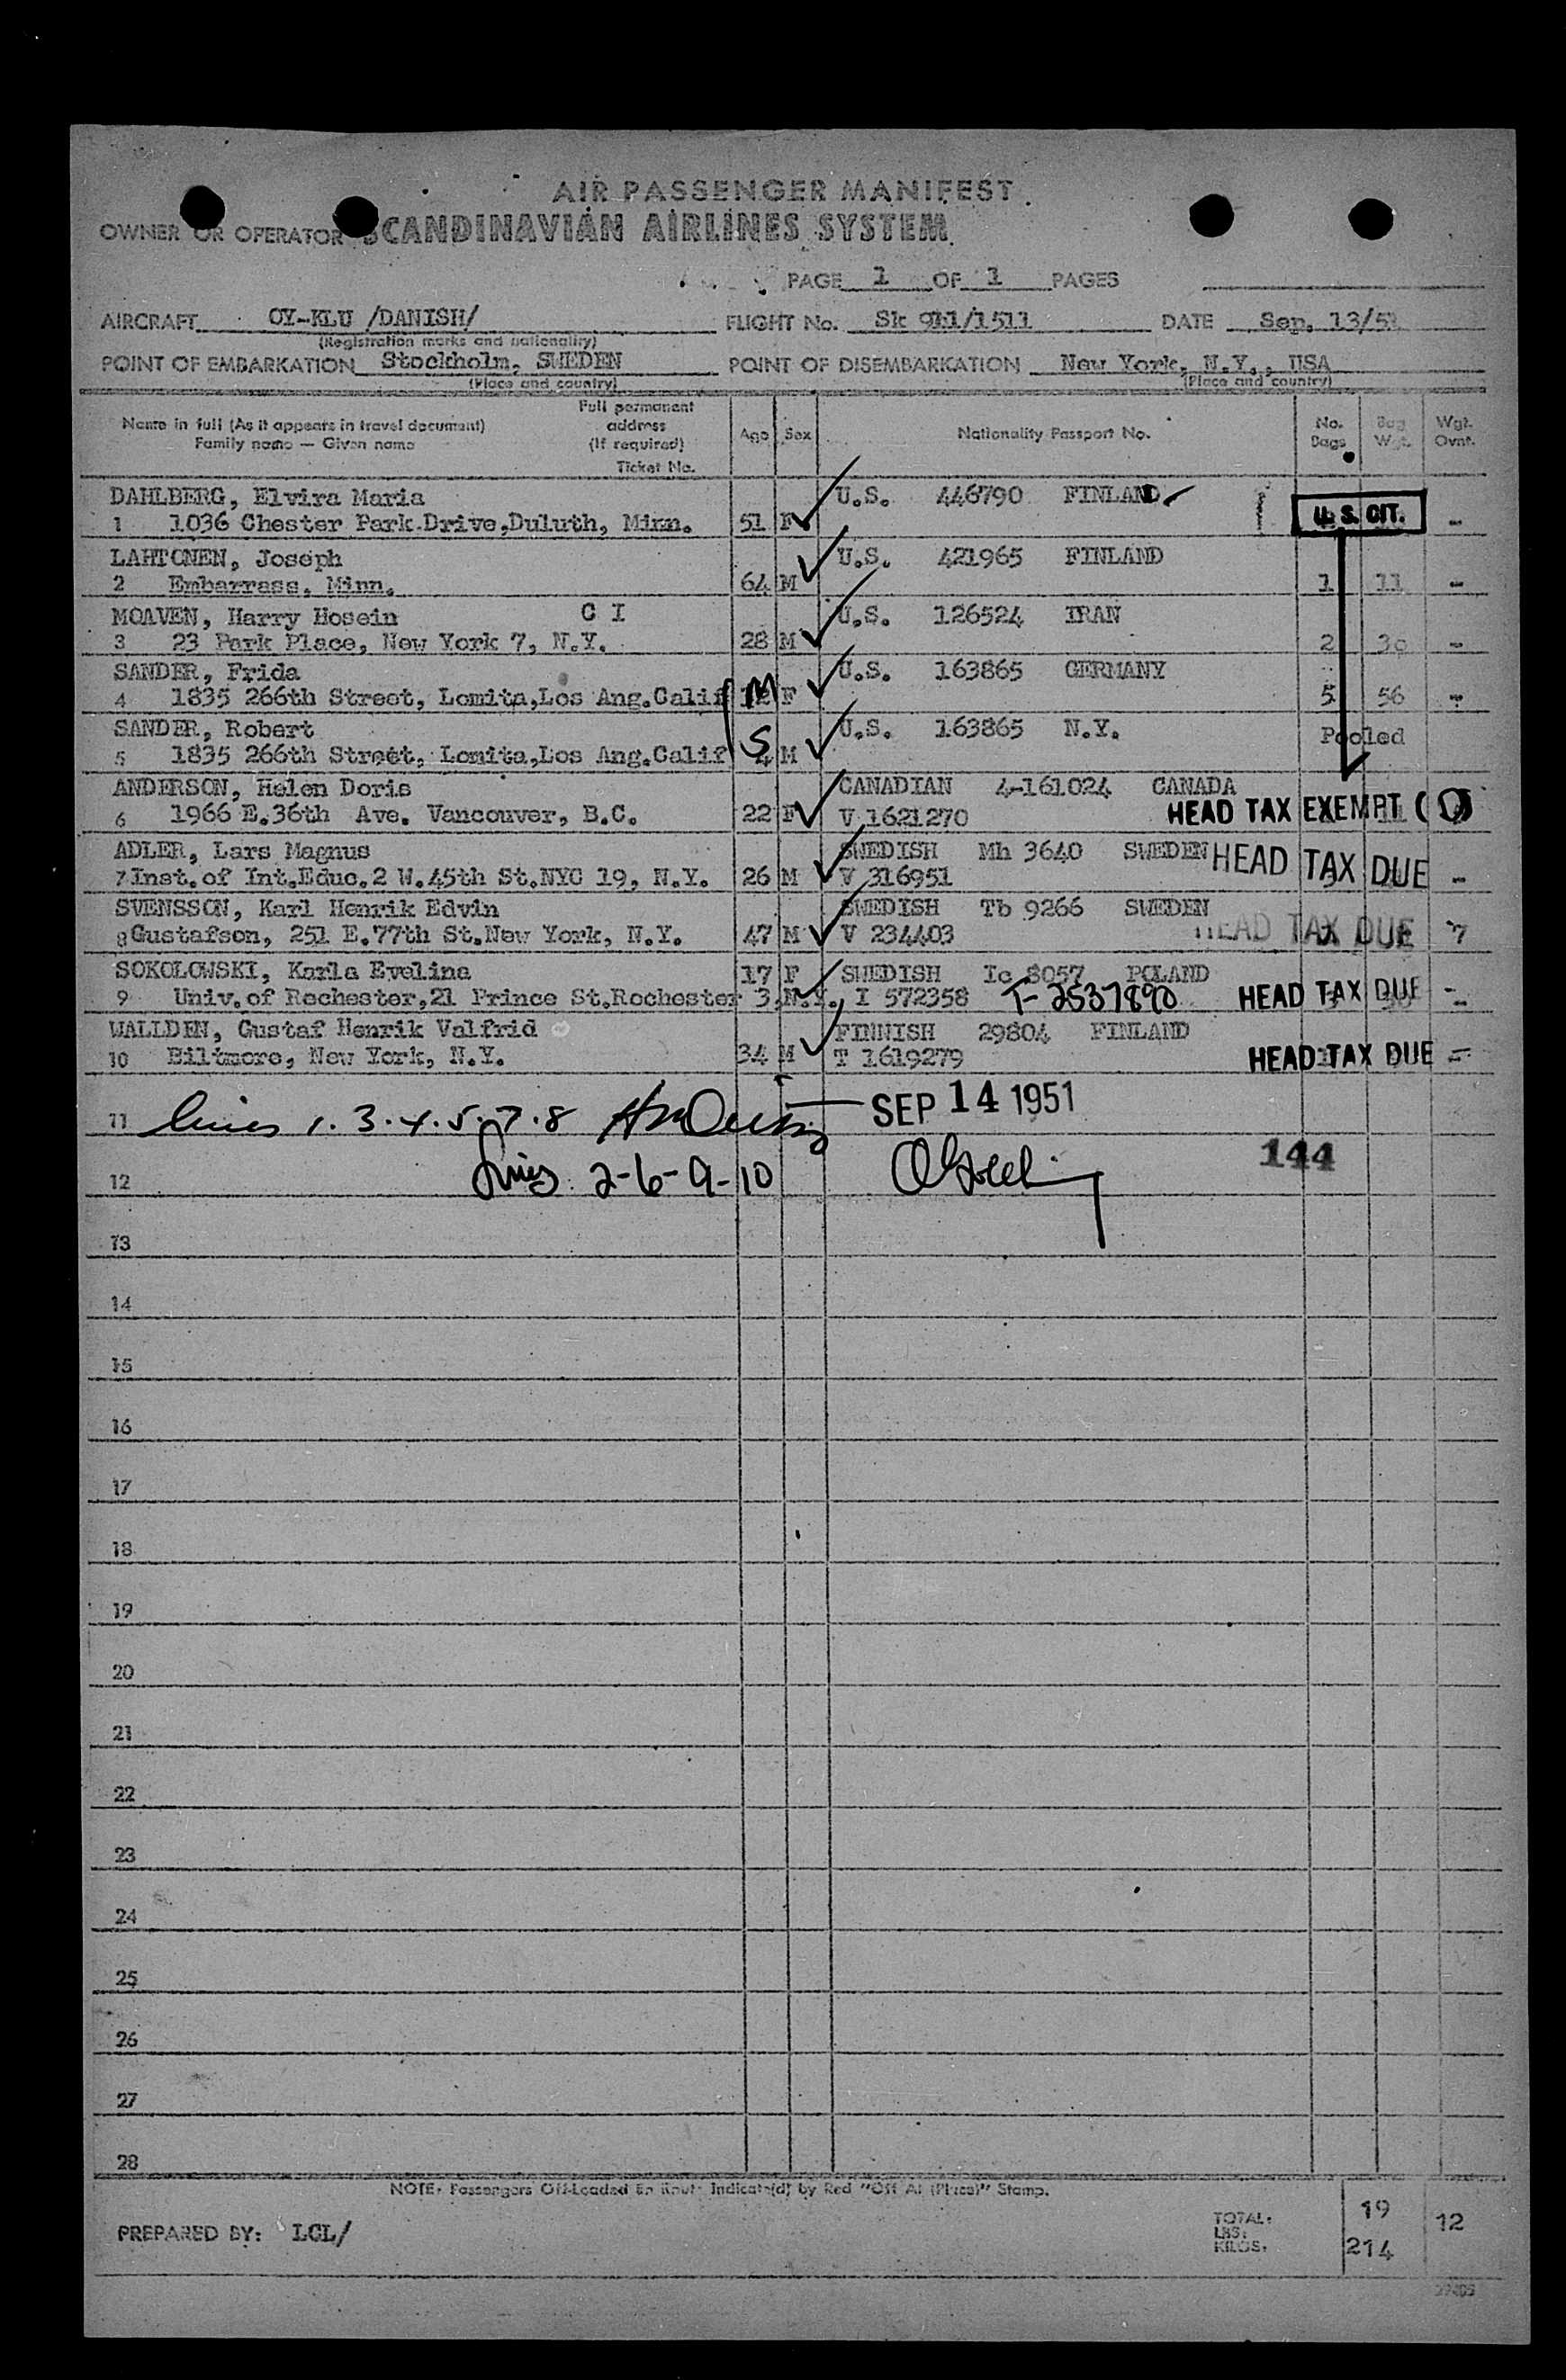 AIR PASSENGER MANIFEST
OWNER OR OPERATOR SCANDINAVIAN AIRLINES SYSTEM
PAGE 1 OF 1 PAGES
AIRCRAFT OY-KLU /DANISH/ FLIGHT No. Sk 911/1511 DATE Sep. 13/51
(Registration marks and nationality)
POINT OF EMBARKATION Stockholm, SWEDEN POINT OF DISEMBARKATION New York, N.Y., USA
(Place and country) (Place and country)
Name in full (As it appears in travel document) Family name — Given name Full permanent address (If required) Ticket No. Age Sex Nationality Passport No. No. Bags Bag Wgt. Wgt. Ovnt.
DAHLBERG, Elvira Maria U.S. 446790 FINLAND
1 1036 Chester Park Drive,Duluth, Minn. 51 F U.S. CIT. -
LAHTONEN, Joseph U.S. 421965 FINLAND
2 Embarrass, Minn. 64 M 1 11 -
MOAVEN, Harry Hosein C I U.S. 126524 IRAN
3 23 Park Place, New York 7, N.Y. 28 M 2 30 -
SANDER, Frida U.S. 163865 GERMANY
4 1835 266th Street, Lomita,Los Ang.Calif M F 5 56 -
SANDER, Robert U.S. 163865 N.Y.
5 1835 266th Street, Lomita,Los Ang.Calif S 4 M Pooled
ANDERSON, Helen Doris CANADIAN 4-161024 CANADA
6 1966 E.36th Ave. Vancouver, B.C. 22 F V 1621270 HEAD TAX EXEMPT
ADLER, Lars Magnus SWEDISH Mh 3640 SWEDEN HEAD TAX DUE
7 Inst.of Int.Educ.2 W.45th St.NYC 19, N.Y. 26 M V 316951 -
SVENSSON, Karl Henrik Edvin SWEDISH Tb 9266 SWEDEN
8 Gustafson, 251 E.77th St.New York, N.Y. 47 M V 234403 HEAD TAX DUE 7
SOKOLOWSKI, Karla Evelina 17 F SWEDISH Ic 8057 POLAND
9 Univ.of Rochester,21 Prince St.Rochester 3,N.Y. I 572358 T-2537890 HEAD TAX DUE -
WALLDEN, Gustaf Henrik Valfrid FINNISH 29804 FINLAND
10 Biltmore, New York, N.Y. 34 M T 1619279 HEAD TAX DUE -
11 lines 1.3.4.5.7.8 SEP 14 1951
12 lines 2-6-9-10 144
13
14
15
16
17
18
19
20
21
22
23
24
25
26
27
28
NOTE: Passengers Off-Loaded En Route Indicate(d) by Red "Off At (Place)" Stamp.
PREPARED BY: LCL/ TOTAL: 19 12
LBS:
KILOS. 214